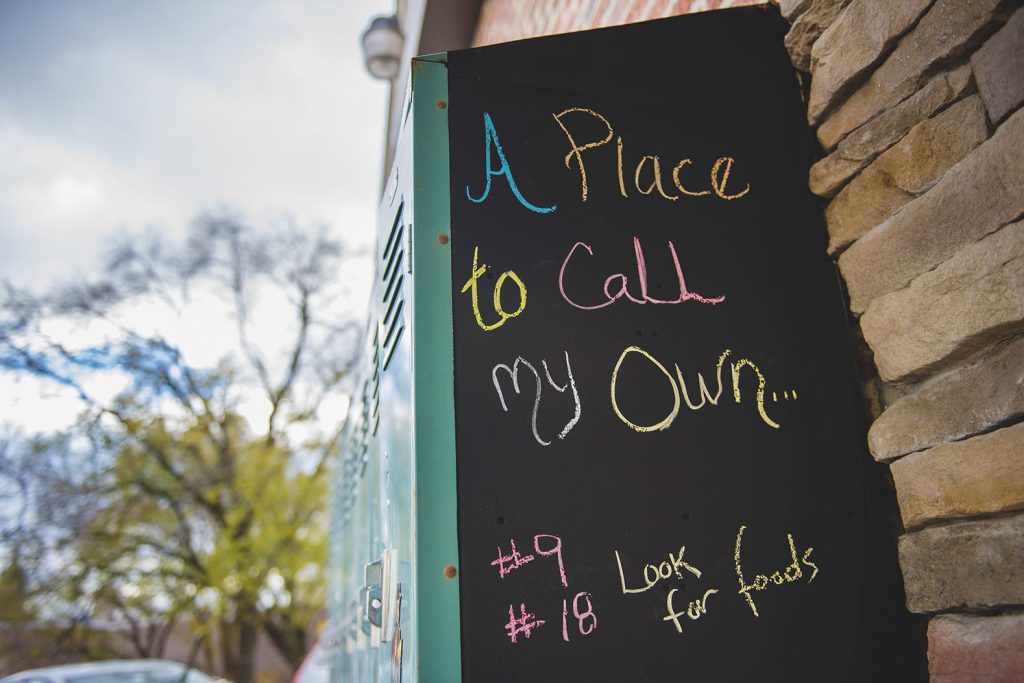 A Place
to Call
my Own...
#9
#18
Look
for foods